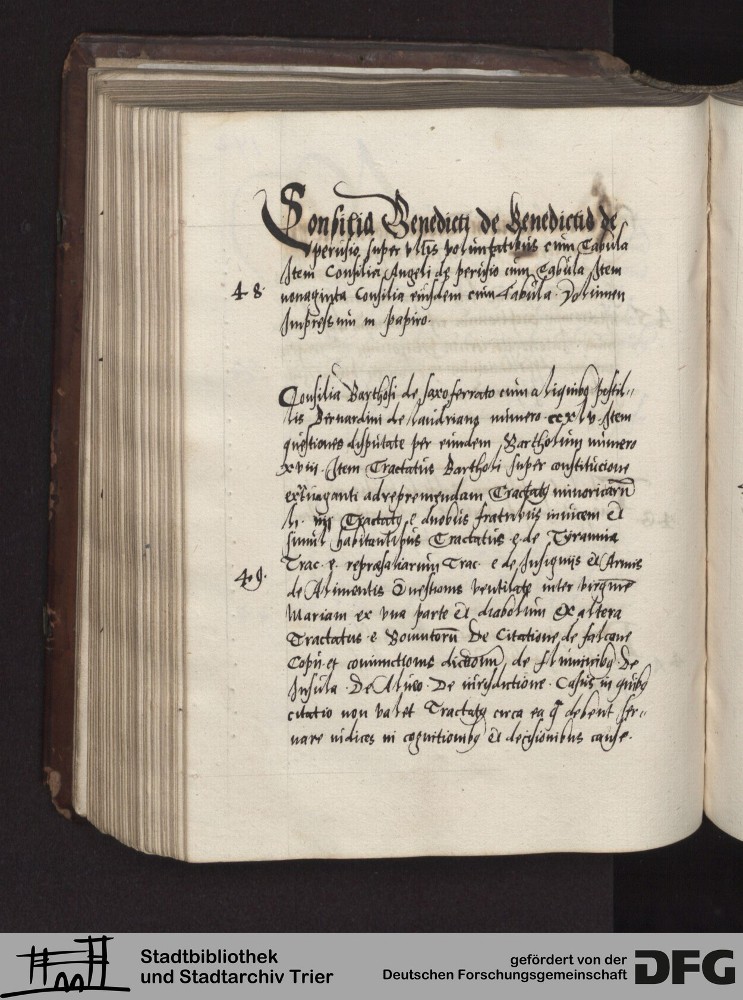 Consilia Benedicti de Benedictis de
perusio super vltis voluntatibus cum Tabula
Item Consilia Angeli de perusio cum Tabula Item
48
nonaginta Consilia eiusdem cum Tabula. Volumen
Impressum in papiro.
Consilia Bartholi de saxoferrato cum aliquibus postil-
lis Bernardini de landriano numero ccxlv. Item
questiones disputate per eundem Bartholum numero
xviii. Item Tractatus Bartholi super constitucione
ad reprimendam Tractatus minoricarum
li. iiij Tractatus e duobus fratribus inuicem et
simul habitantibus Tractatus e de Tyrannia
Trac. e. represaliarum Trac. e de Insignijs et Armis
49.
de Alimentis Questionis ventilate inter virginem
Mariam ex vna parte et diabolum Ex altera
Tractatus e De Citatione de falcone
de fluminibus De
Insula. De Alueo. De iurisdictione. Casus in quibus
citatio non valet Tractatus circa ea que debent ser-
uare iudices in cognitionibus et decisionibus cause.
Stadtbibliothek
und Stadtarchiv Trier
gefördert von der
Deutschen Forschungsgemeinschaft
DFG